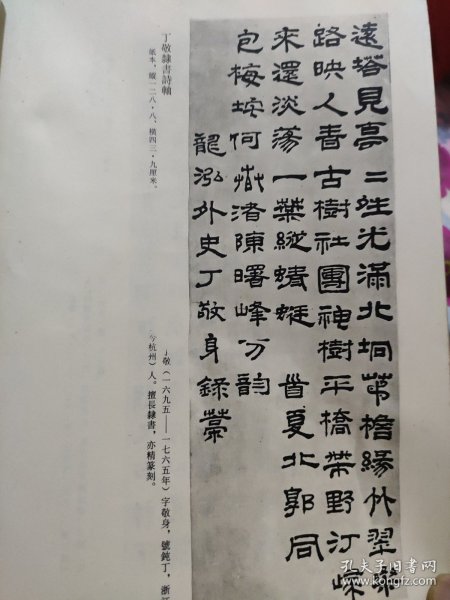 遠塔見亭二 光滿北坰茆檐緣竹翠
路映人青古樹社團神樹平橋帶野汀
來還淡蕩一葉縱蜻蜓 首夏北郭同
包梅垵何 渚陳曙峰分韵
龍泓外史丁敬身錄藁
丁敬隸書詩軸
紙本，縱一二八·八、橫四三·九厘米。
丁敬（一六九五——一七六五年）字敬身，號鈍丁，浙
今杭州）人。擅長隸書，亦精篆刻。
孔夫子旧书网